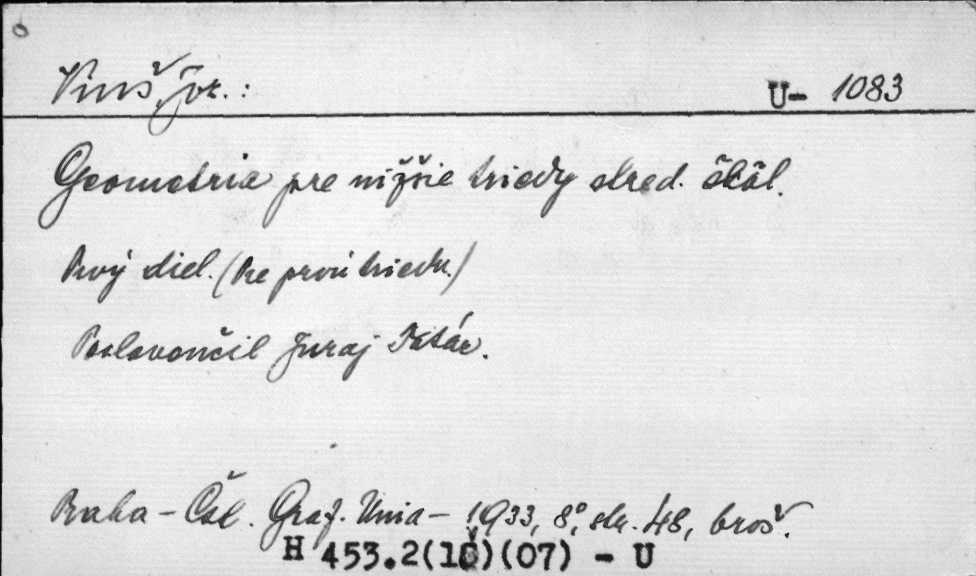 Vinš, Jar.: U- 1083
Geometria pre nižšie triedy stred. škôl.
Prvý diel. (Pre prvú triedu.)
Poslovenčil Juraj
Praha - Čsl. Graf. Unia - 1933, 8°, str. 48, brož.
H 453.2(1Č)(07) - U